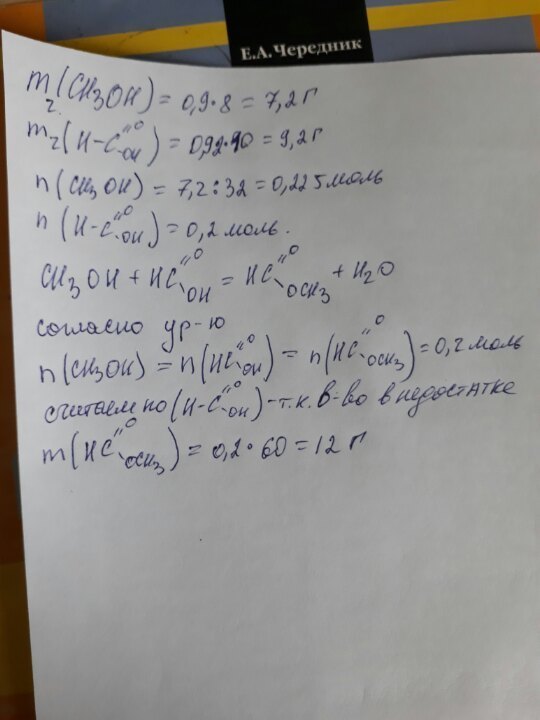 Е.А.Чередник
m₂(CH3OH) = 0,9·8 = 7,2г
m₂(H-C=O-OH) = 0,92·10 = 9,2г
n(CH3OH) = 7,2:32 = 0,225моль
n(H-C=O-OH) = 0,2 моль.
CH3OH + HC=O-OH = HC=O-OCH3 + H2O
согласно ур-ю
n(CH3OH) = n(HC=O-OH) = n(HC=O-OCH3) = 0,2 моль
считаем по (H-C=O-OH) -т.к. в-во в недостатке
m(HC=O-OCH3) = 0,2·60 = 12 г